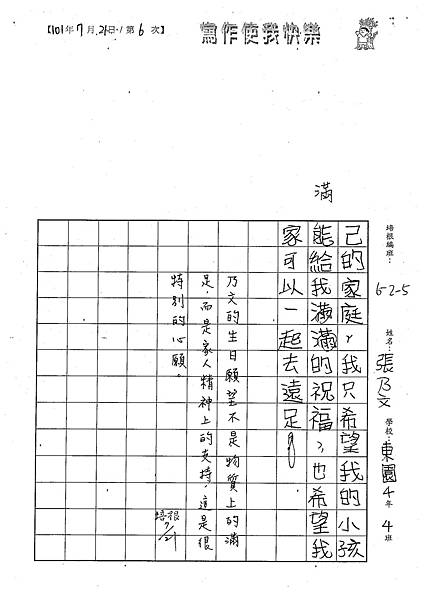 【101年7月21日·第6次】
寫作使我快樂
培根編班：5-2-5
姓名：張乃文 學校：東園4年4班
滿
己的家庭，我只希望我的小孩
能給我滿滿的祝福，也希望我
家可以一起去遠足。
乃文的生日願望不是物質上的滿
足，而是家人精神上的支持，這是很
特別的心願。
培根
7/21